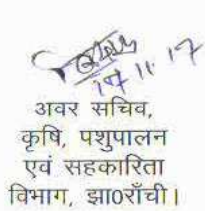 17.11.17
अवर सचिव,
कृषि, पशुपालन
एवं सहकारिता
विभाग, झा0राँची।